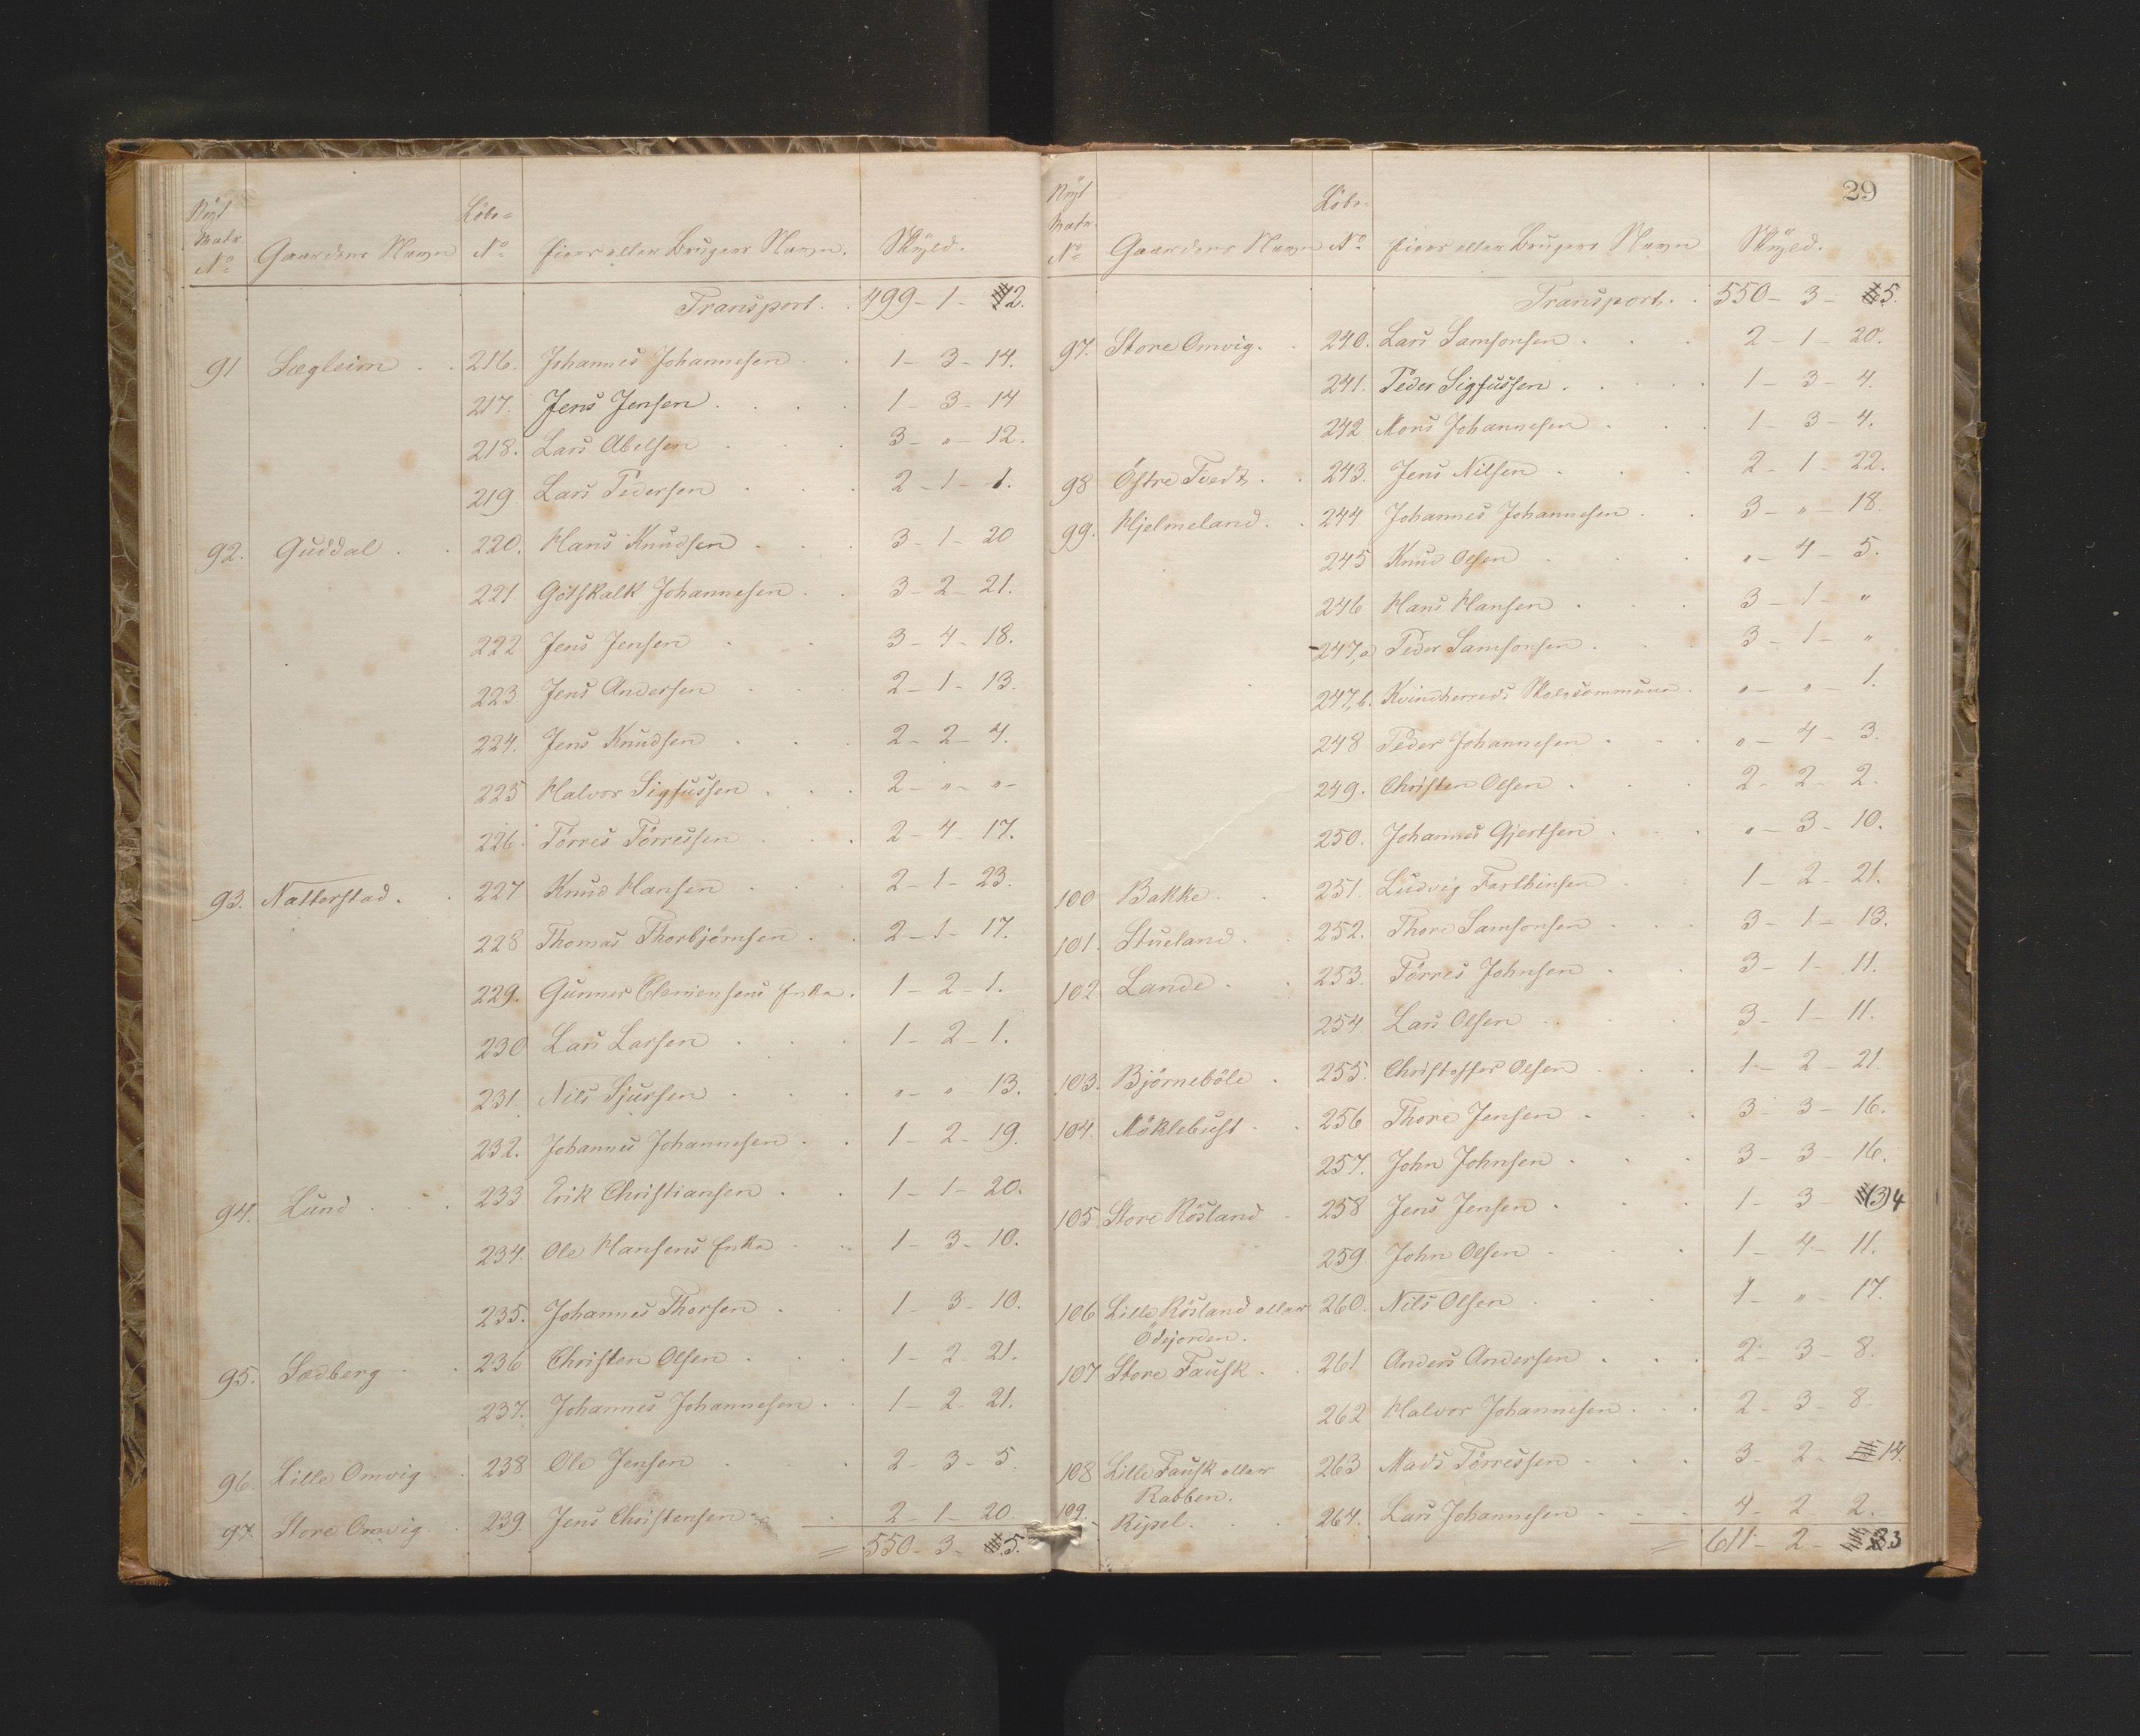 Nyt Matr. No Gaardens Navn Löbe= No Eiers eller Brugers Navn. Skyld.
Transport . . 499 - 1 - 2.
91 Sægleim . . 216. Johannes Johannesen . . 1 - 3 - 14.
217. Jens Jensen . . . . 1 - 3 - 14
218. Lars Abelsen . . . 3 - " - 12.
219 Lars Pedersen . . . 2 - 1 - 1.
92. Guddal . . 220. Hans Knudsen . . . 3 - 1 - 20
221 Götskalk Johannesen . . 3 - 2 - 21.
222 Jens Jensen . . 3 - 4 - 18.
223. Jens Andersen . . . 2 - 1 - 13.
224. Jens Knudsen . . . 2 - 2 - 4.
225 Halvor Sigfussen . . . 2 - " - " -
226. Törres Törressen . . . 2 - 4 - 17.
93. Natterstad . . 227 Knud Hansen . . . 2 - 1 - 23.
228 Thomas Thorbjörnsen . . 2 - 1 - 17.
229. Gunner Clemensens Enke . 1 - 2 - 1.
230 Lars Larsen . . . 1 - 2 - 1.
231. Nils Sjursen . . . " - " - 13.
232. Johannes Johannesen . . 1 - 2 - 19.
94. Lund . . . 233 Erik Christiansen . . 1 - 1 - 20.
234. Ole Hansens Enke . . 1 - 3 - 10.
235. Johannes Thorsen . . 1 - 3 - 10.
95. Sædberg . . 236 Christen Olsen . . . 1 - 2 - 21.
237. Johannes Johannesen . . 1 - 2 - 21.
96. Lille Omvig . 238 Ole Jensen . . . 2 - 3 - 5.
97. Store Omvig . . 239. Jens Christensen . . 2 - 1 - 20.
= 550 - 3 - 5.
29
Nyt Matr. No Gaardens Navn Löbe- No Eiers eller Brugers Navn Skyld.
Transport . . 550 - 3 - 5.
97. Store Omvig . . 240. Lars Samsonsen . . . 2 - 1 20.
241. Peder Sigfussen . . . . . 1 - 3 - 4.
242 Mons Johannesen . . . 1 - 3 - 4.
98 Östre Tvedt . . 243. Jens Nilsen . . . 2 - 1 - 22.
99. Hjelmeland . . 244 Johannes Johannesen . . 3 - " - 18.
245 Knud Olsen . . . " - 4 - 5.
246 Hans Hansen . . . 3 - 1 - "
247,a Peder Samsonsen . . . 3 - 1 - "
247,b. Kvindherreds Skolecommune . " - " - 1.
248 Peder Johannesen . . . " - 4 - 3.
249. Christen Olsen . . . 2 - 2 - 2.
250. Johannes Gjertsen . . . " - 3 - 10.
100 Bakke . . 251. Ludvig Farthinsen . . 1 - 2 - 21.
101. Stueland . . 252. Thore Samsonsen . . . 3 - 1 - 13.
102 Lande . . 253. Törres Johnsen . . 3 - 1 - 11.
254 Lars Olsen . . . 3 - 1 - 11.
103. Björneböle . 255. Christoffer Olsen . . . 1 - 2 - 21
104. Möklebust . . 256 Thore Jensen . . . 3 - 3 - 16.
257. John Johnsen . . . 3 - 3 - 16.
105 Store Rösland . 258 Jens Jensen . . . 1 - 3 - (3)4
259 John Olsen . . . 1 - 4 - 11.
106 Lille Rösland eller 260. Nils Olsen . . . 1 - " - 17.
Ödejorden.
107 Store Fausk . . 261 Anders Andersen . . . 2 - 3 - 8.
262 Halvor Johannesen . . . 2 - 3 - 8.
108 Lille Fausk eller 263 Mads Törressen . . . 3 - 2 - 14.
Rabben.
109. Ripel . . . 264. Lars Johannesen . . . 4 - 2 - 2.
= 611 - 2 - 3